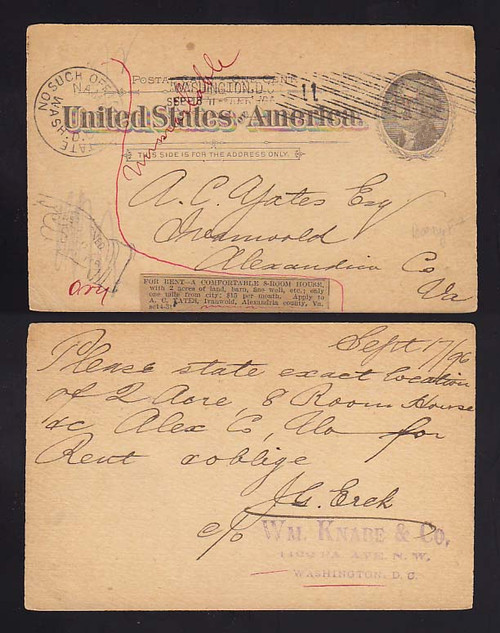 NO SUCH OFFICE
STATE
WASH'N
POSTAL CARD ONE CENT.
WASHINGTON, D.C.
SEPT 18
11
United States of America.
THIS SIDE IS FOR THE ADDRESS ONLY.
A. C. Yates Esq
Ivanwold
Alexandria Co
Va
FOR RENT—A COMFORTABLE 8-ROOM HOUSE,
with 2 acres of land, barn, fine well, etc.; only
one mile from city; $15 per month. Apply to
A. C. YATES, Ivanwold, Alexandria county, Va.
Sept 17/96
Please state exact location
of 2 Acre, 8 Room House
&c Alex Co, Va for
Rent & oblige
J G. Erck
c/o WM. KNABE & CO.
AVE. N. W.
WASHINGTON, D. C.